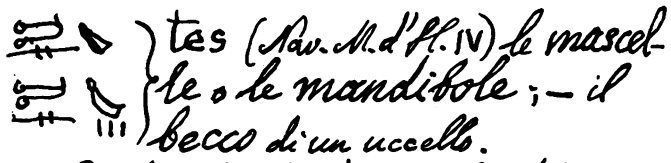 tes (Nav. M. d'H. IV) le mascel-
le o le mandibole; – il
becco di un uccello.